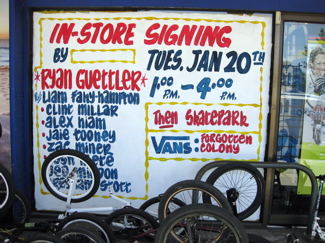 IN-STORE SIGNING
BY
TUES, JAN 20TH
RYAN GUETTLER
1:00 P.M. - 4:00 P.M.
LIAM FAHY-HAMPTON
CLINT MILLAR
ALEX HIAM
JAIE TOOHEY
MINER
THEN SKATEPARK
VANS: FORGOTTEN
COLONY